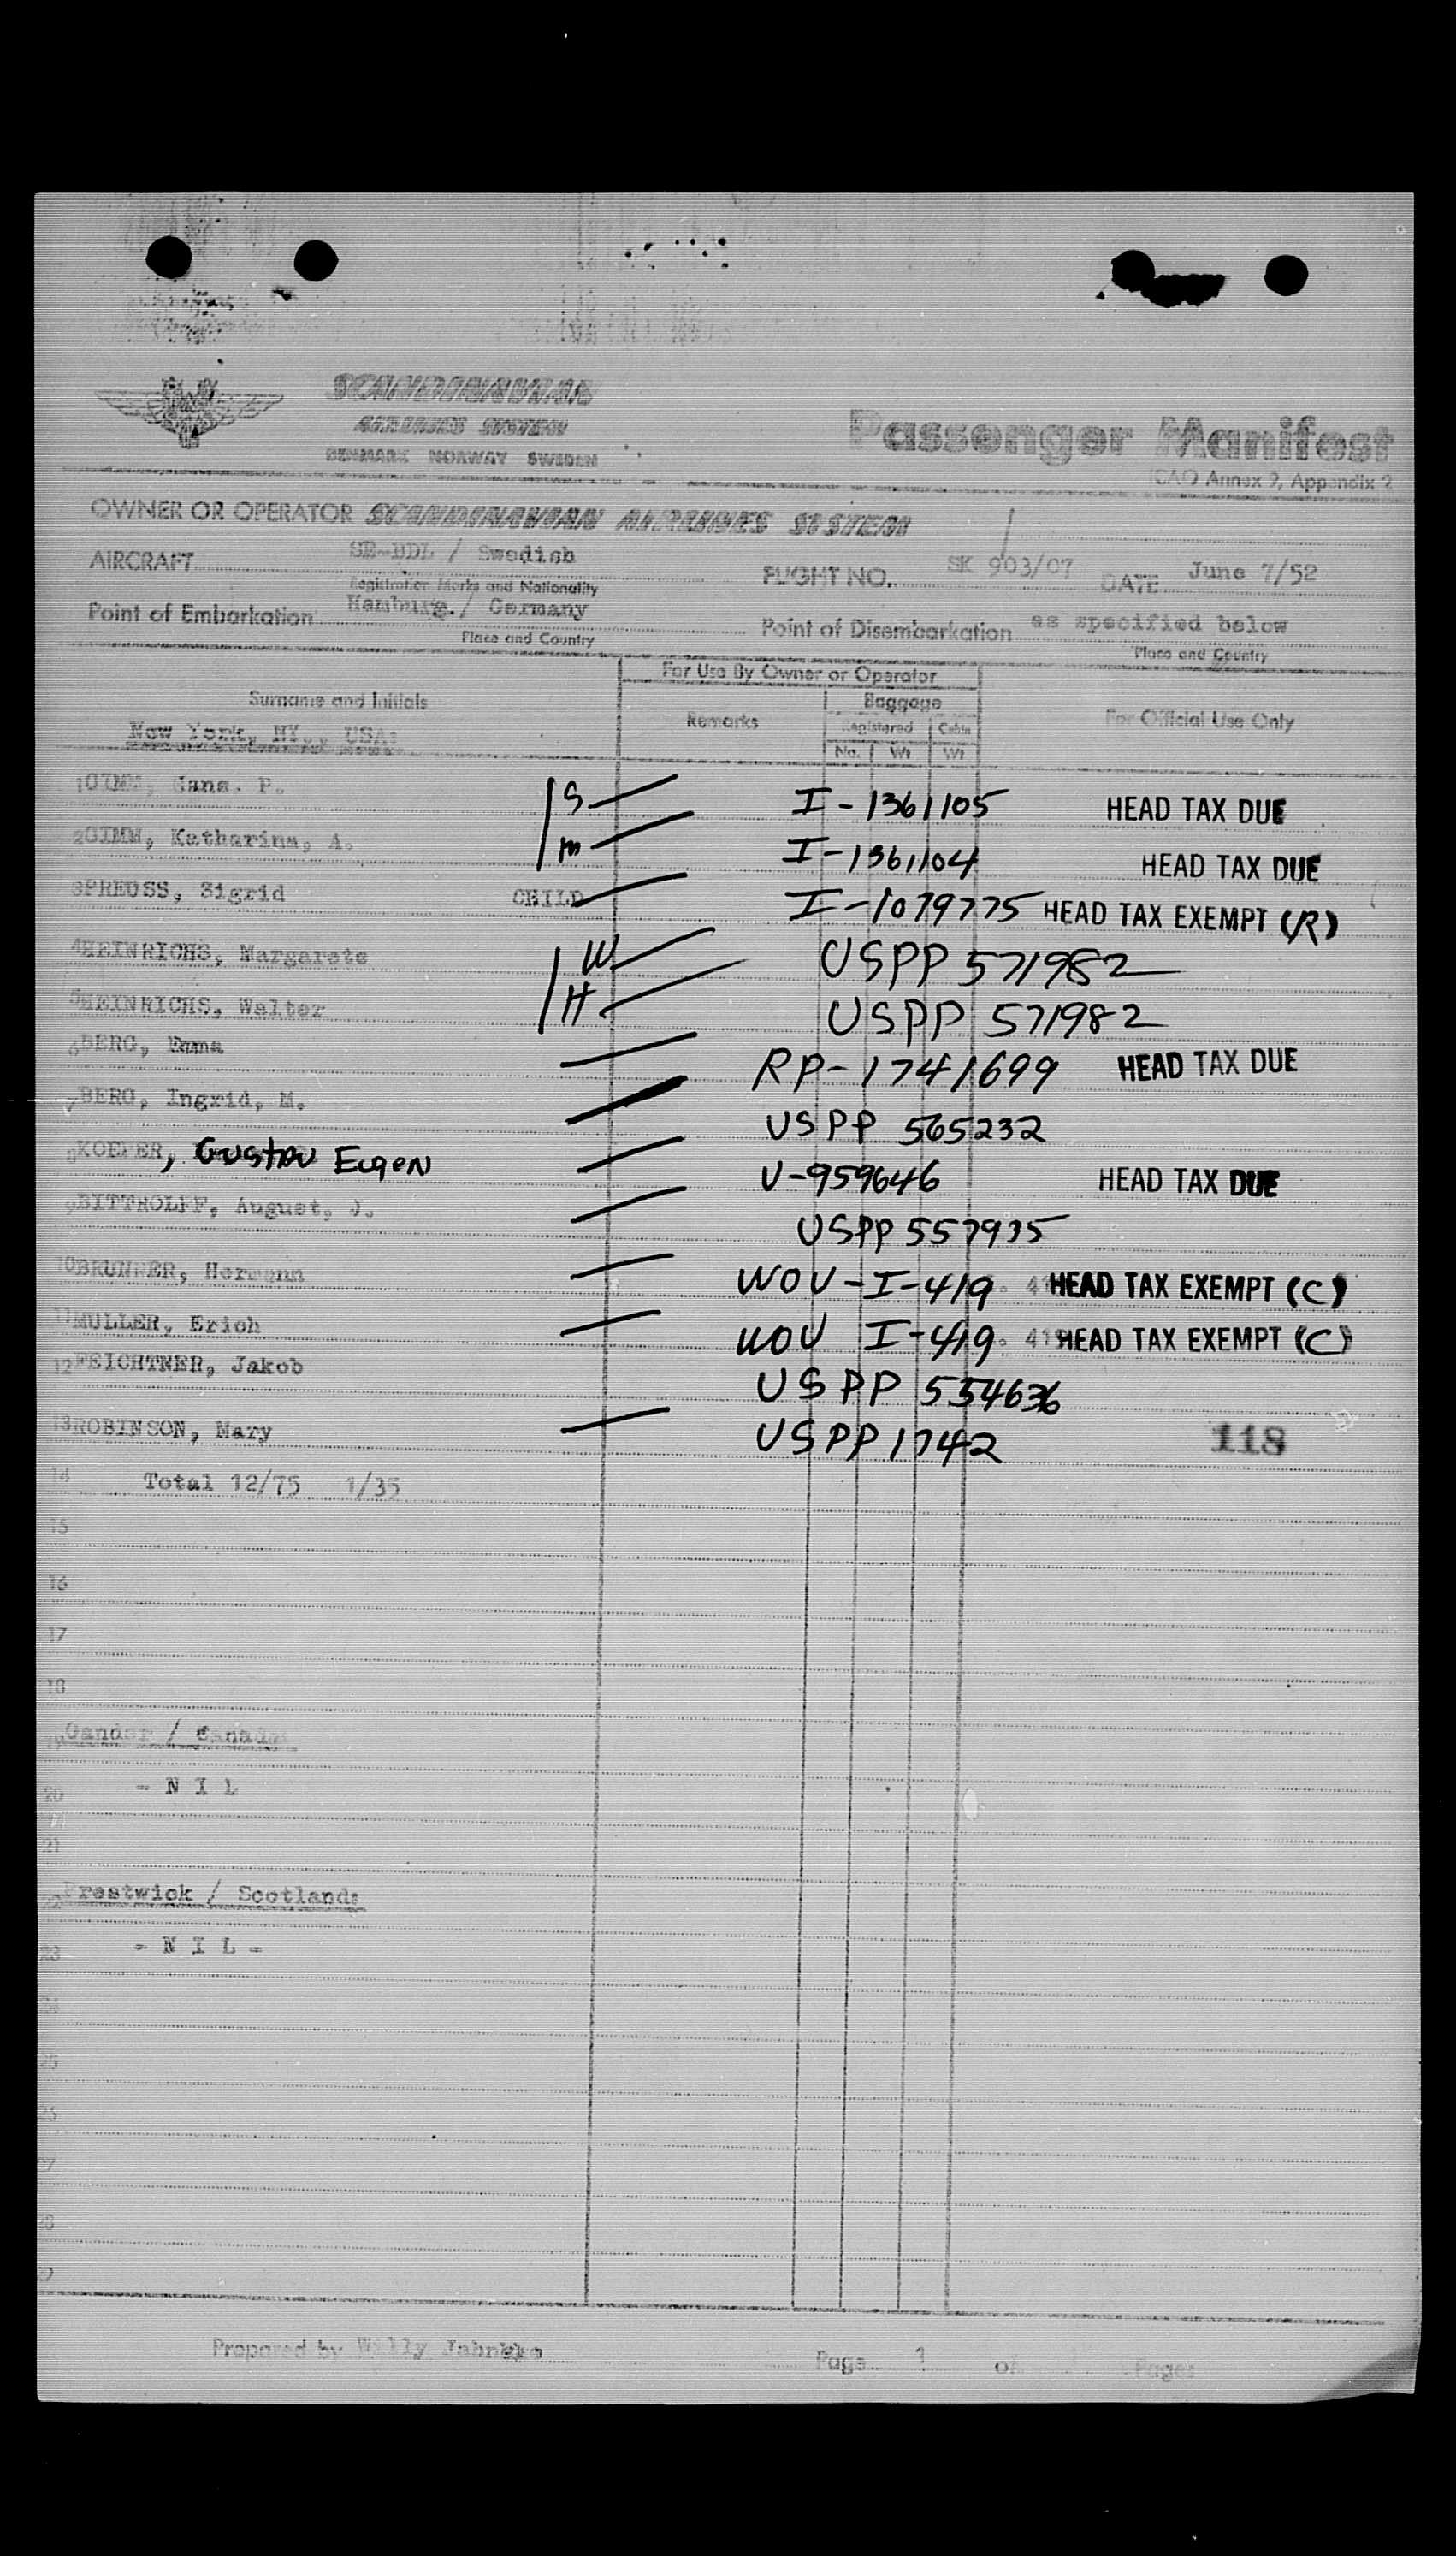 SCANDINAVIAN
AIRLINES SYSTEM
DENMARK NORWAY SWEDEN
Passenger Manifest
ICAO Annex 9, Appendix 2
OWNER OR OPERATOR SCANDINAVIAN AIRLINES SYSTEM
AIRCRAFT SE-BDL / Swedish FLIGHT NO. SK 903/07 DATE June 7/52
Registration Marks and Nationality
Point of Embarkation Hamburg. / Germany Point of Disembarkation as specified below
Place and Country Place and Country
For Use By Owner or Operator
Surname and Initials Remarks Baggage For Official Use Only
Registered Cabin
New York, NY., USA:
No. Wt Wt
1 GIMM, Hans. P. S I-1361105 HEAD TAX DUE
2 GIMM, Katharina, A. m I-1361104 HEAD TAX DUE
3 PREUSS, Sigrid CHILD I-1079775 HEAD TAX EXEMPT (R)
4 HEINRICHS, Margarete W USPP 571982
5 HEINRICHS, Walter H USPP 571982
6 BERG, Emma RP-1741699 HEAD TAX DUE
7 BERG, Ingrid, M. USPP 565232
8 , Gustav Eugen V-959646 HEAD TAX DUE
9 BITTROLFF, August, J. USPP 557935
10 BRUNNER, Hermann WOV-I-419 HEAD TAX EXEMPT (C)
11 MULLER, Erich WOV I-419 HEAD TAX EXEMPT (C)
12 FEICHTNER, Jakob USPP 554636
13 ROBINSON, Mary USPP 1742 118
14 Total 12/75 1/35
15
16
17
18
19 Gander / Canada
20 - N I L
21
22 Prestwick / Scotland:
23 - N I L -
24
25
26
27
28
Prepared by Willy Page 1 of Pages